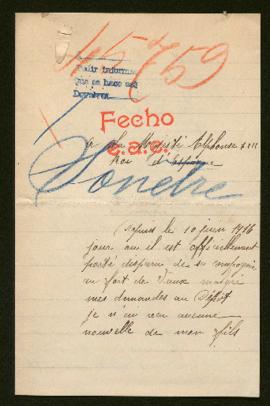 45759
Pedir informes
que se hace sea
Fecho
e.a.c.
à Sa Majesté Alphonse XIII
Roi d'Espagne
Londre
Depuis le 10 juin 1916
jour où il est officiellement
porté disparu de sa compagnie
au fort de Vaux malgré
mes demandes au Dépôt
je n'ai reçu aucune
nouvelle de mon fils